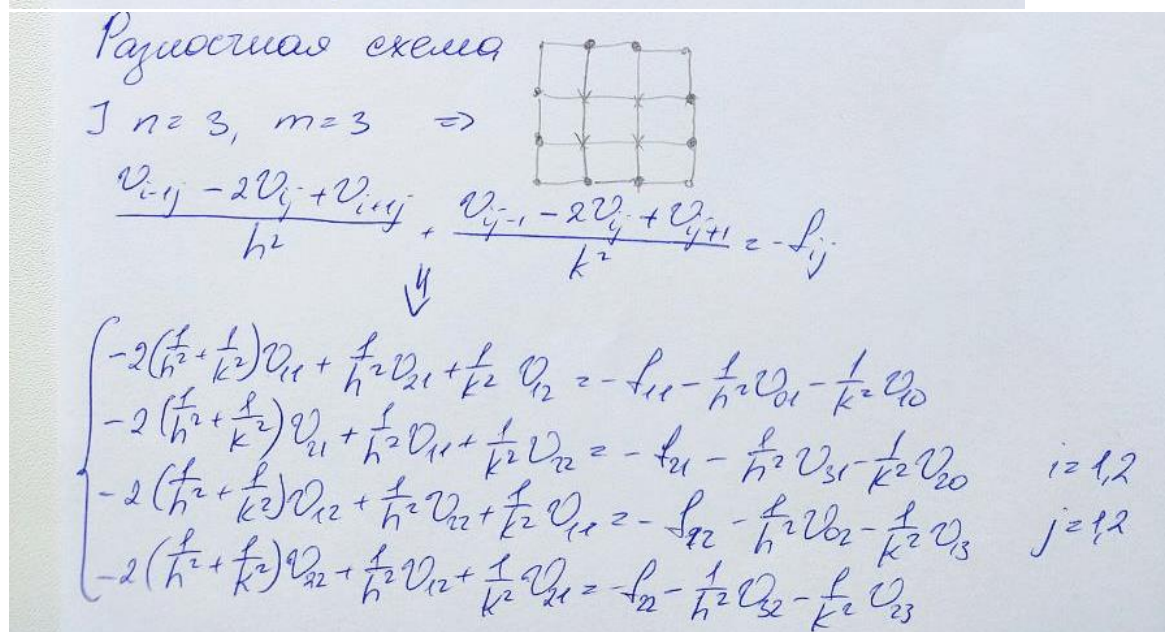 Разностная схема
] n = 3, m = 3 =>
(v_{i-1j} - 2v_{ij} + v_{i+1j})/h² + (v_{ij-1} - 2v_{ij} + v_{ij+1})/k² = -f_{ij}
⇓
-2(1/h² + 1/k²)v₁₁ + 1/h² v₂₁ + 1/k² v₁₂ = -f₁₁ - 1/h² v₀₁ - 1/k² v₁₀
-2(1/h² + 1/k²)v₂₁ + 1/h² v₁₁ + 1/k² v₂₂ = -f₂₁ - 1/h² v₃₁ - 1/k² v₂₀ i = 1,2
-2(1/h² + 1/k²)v₁₂ + 1/h² v₂₂ + 1/k² v₁₁ = -f₁₂ - 1/h² v₀₂ - 1/k² v₁₃ j = 1,2
-2(1/h² + 1/k²)v₂₂ + 1/h² v₁₂ + 1/k² v₂₁ = -f₂₂ - 1/h² v₃₂ - 1/k² v₂₃